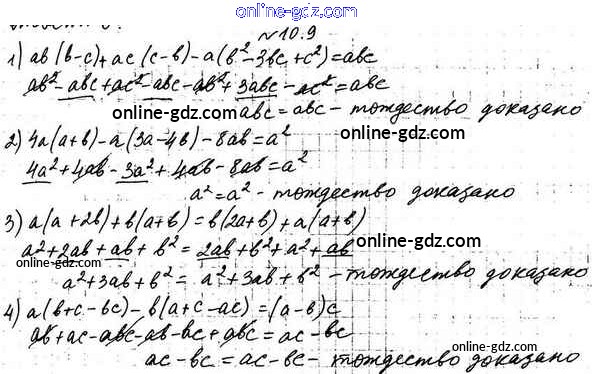 online-gdz.com
№10.9
1) ab(b-c)+ac(c-b)-a(b²-3bc+c²)=abc
ab²-abc+ac²-abc-ab²+3abc-ac²=abc
online-gdz.com abc=abc - тождество доказано
online-gdz.com
2) 4a(a+b)-a(3a-4b)-8ab=a²
4a²+4ab-3a²+4ab-8ab=a² online-gdz.com
a²=a² - тождество доказано
online-gdz.com
3) a(a+2b)+b(a+b)=b(2a+b)+a(a+b)
a²+2ab+ab+b²=2ab+b²+a²+ab online-gdz.com
online-gdz.com
a²+3ab+b²=a²+3ab+b² - тождество доказано
online-gdz.com
4) a(b+c-bc)-b(a+c-ac)=(a-b)c
ab+ac-abc-ab-bc+abc=ac-bc
online-gdz.com
ac-bc=ac-bc - тождество доказано
online-gdz.com